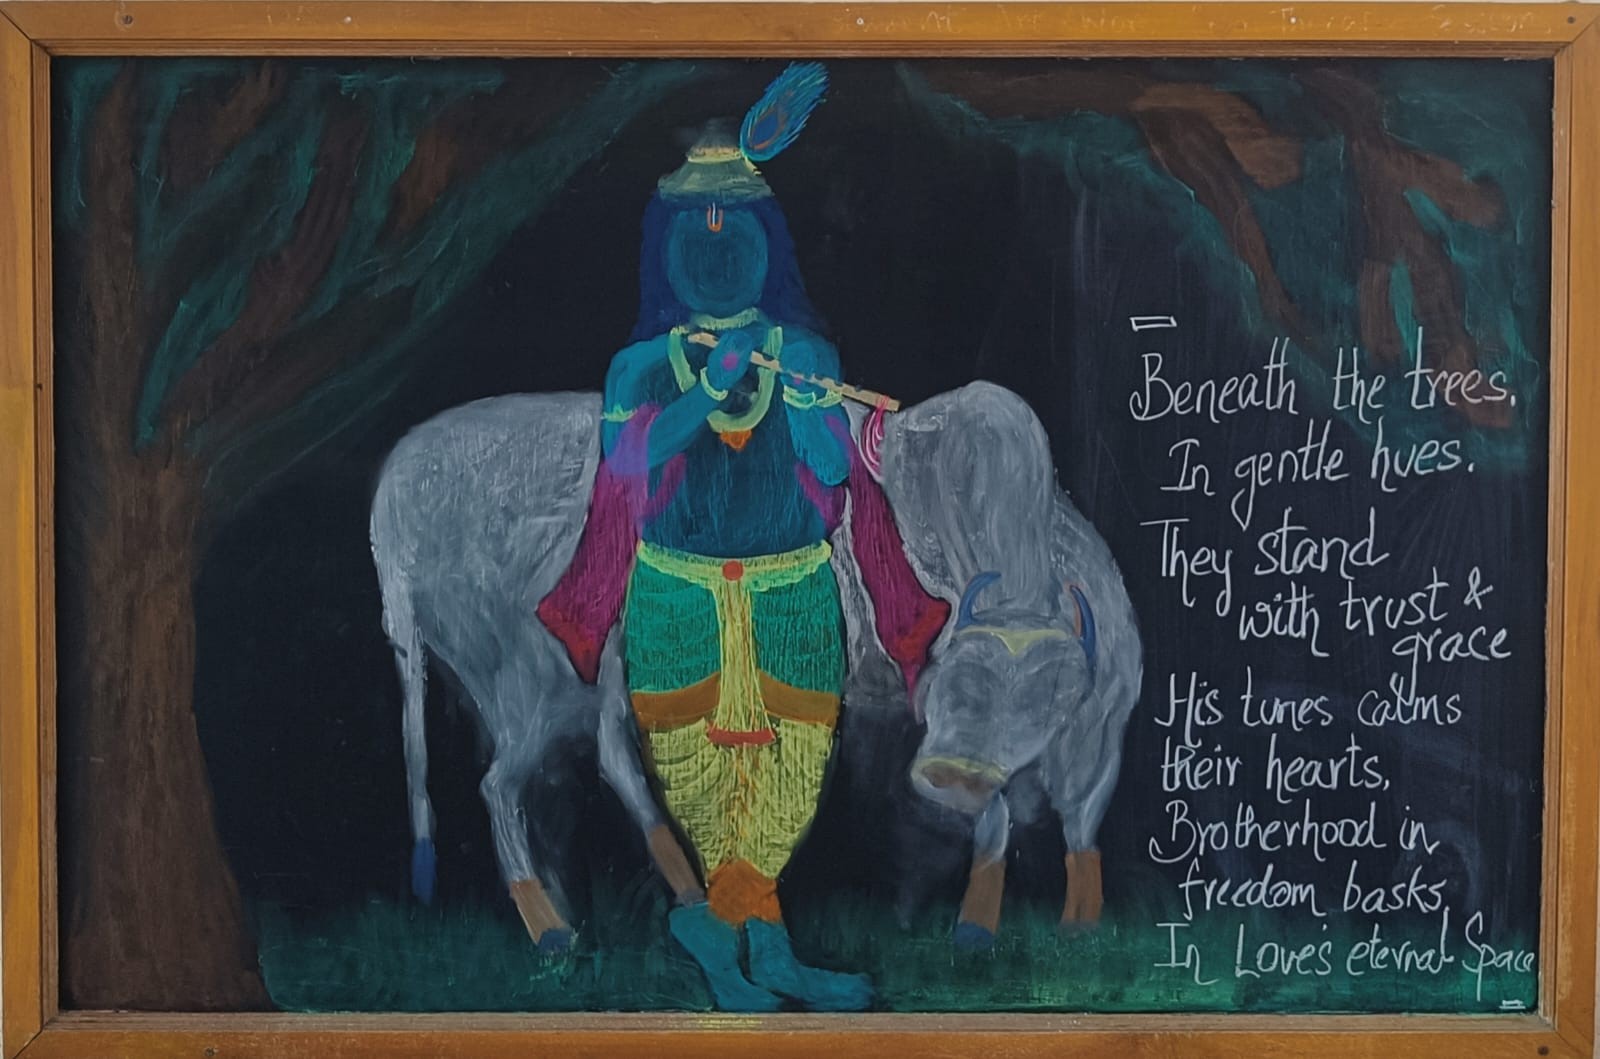 Beneath the trees.
In gentle hues.
They stand
with trust &
grace
His tunes calms
their hearts,
Brotherhood in
freedom basks.
In Love's eternal Space